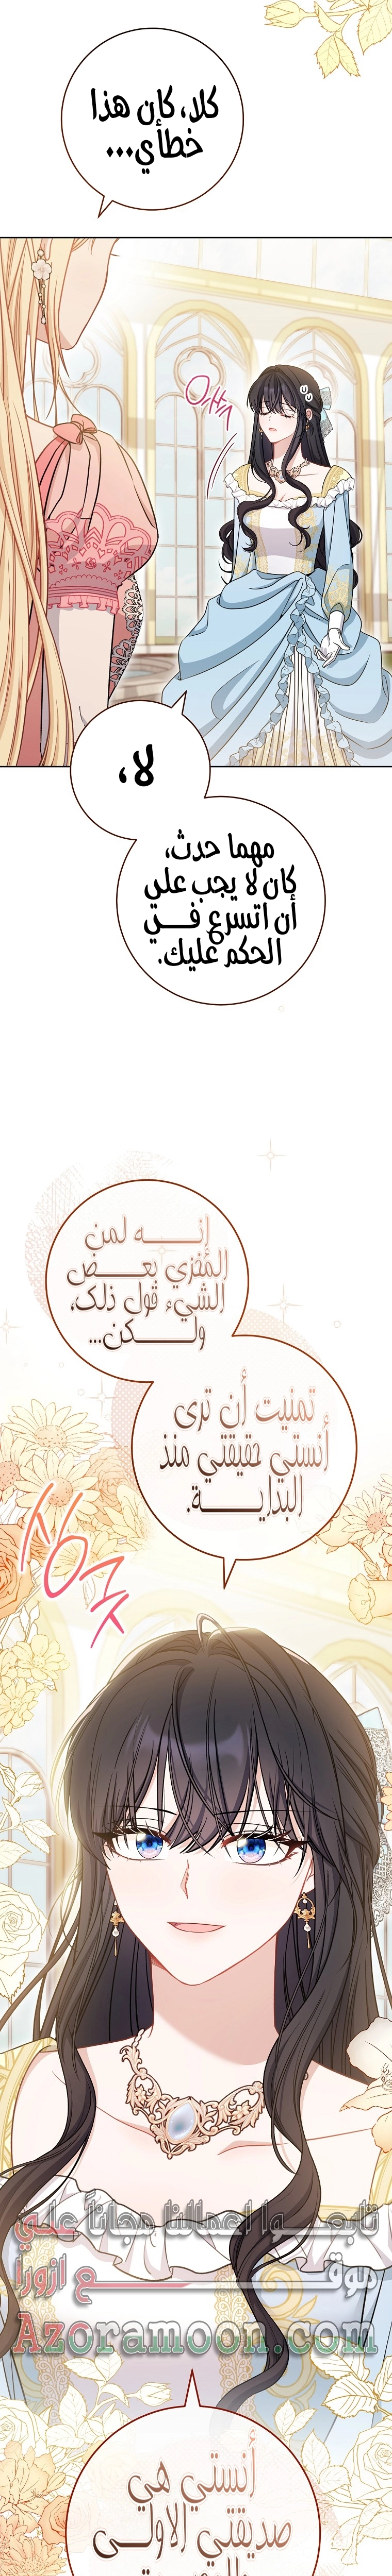 كلا، كان هذا
خطأي...
아뇨
لا،
مهما حدث،
كان لا يجب علي
أن اتسرع في
الحكم عليك.
إنه لمن
المُخزي بعض
الشيء قول ذلك،
ولكن...
تمنيت أن ترى
أنستي حقيقتي منذ
البداية.
싱긋
تابعوا اعمالنا مجاناً علي
موقع ازورا
Azoramoon.com
أنستي هي
صديقتي الاولى